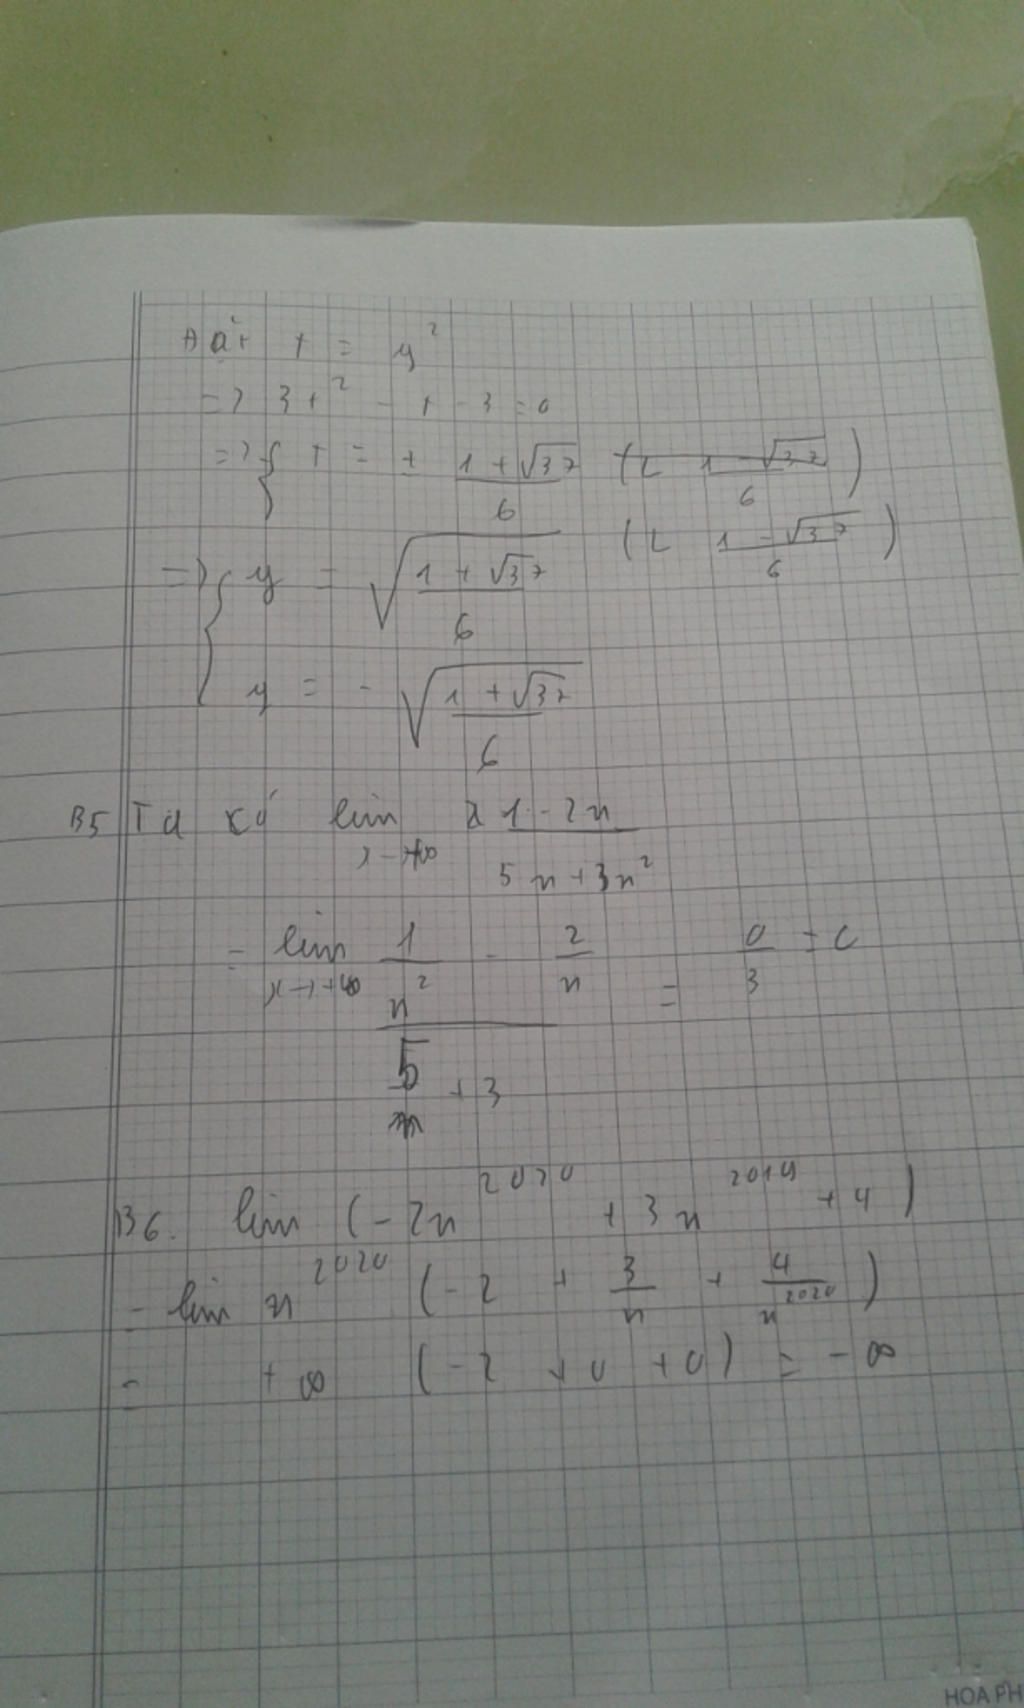 Đặt t = y²
=> 3t² - t - 3 = 0
=> { t = + (1 + √37)/6 (L (1 - √37)/6)
(L (1 - √37)/6)
=> { y = √((1 + √37)/6)
y = - √((1 + √37)/6)
B5 Ta có lim x→+∞ (1 - 2n)/(5n + 3n²)
= lim x→+∞ (1/n² - 2/n)/(5/n + 3) = 0/3 = 0
B6. lim (-2n²⁰²⁰ + 3n²⁰¹⁹ + 4)
= lim n²⁰²⁰ (-2 + 3/n + 4/n²⁰²⁰)
= +∞ (-2 + 0 + 0) = -∞
HOA PH